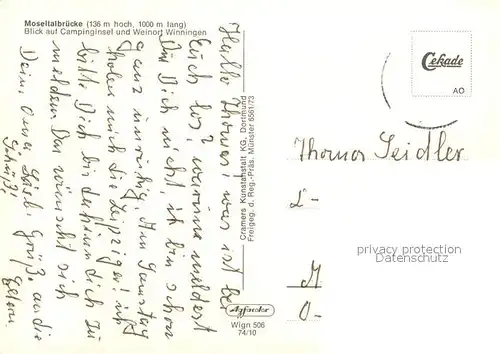 Moseltalbrücke (136 m hoch, 1000 m lang)
Blick auf Campinginsel und Weinort Winningen
Hallo Thomas! was ist bei
Euch los? warum meldest
Du Dich nicht, ich bin schon
ganz unruhig. Am Samstag
holen mich die Leipziger! ich
bitte Dich bis dahin dich zu
melden Das wünscht sich
Deine Oma Grüß. an die
Eltern
Cramers Kunstanstalt KG, Dortmund
Freigeg. d. Reg.-Präs. Münster 6561/73
Agfacolor
Wign 506
74/10
Cekade
AO
Thomas Seidler
L-
privacy protection
AKPool.de
M
O-